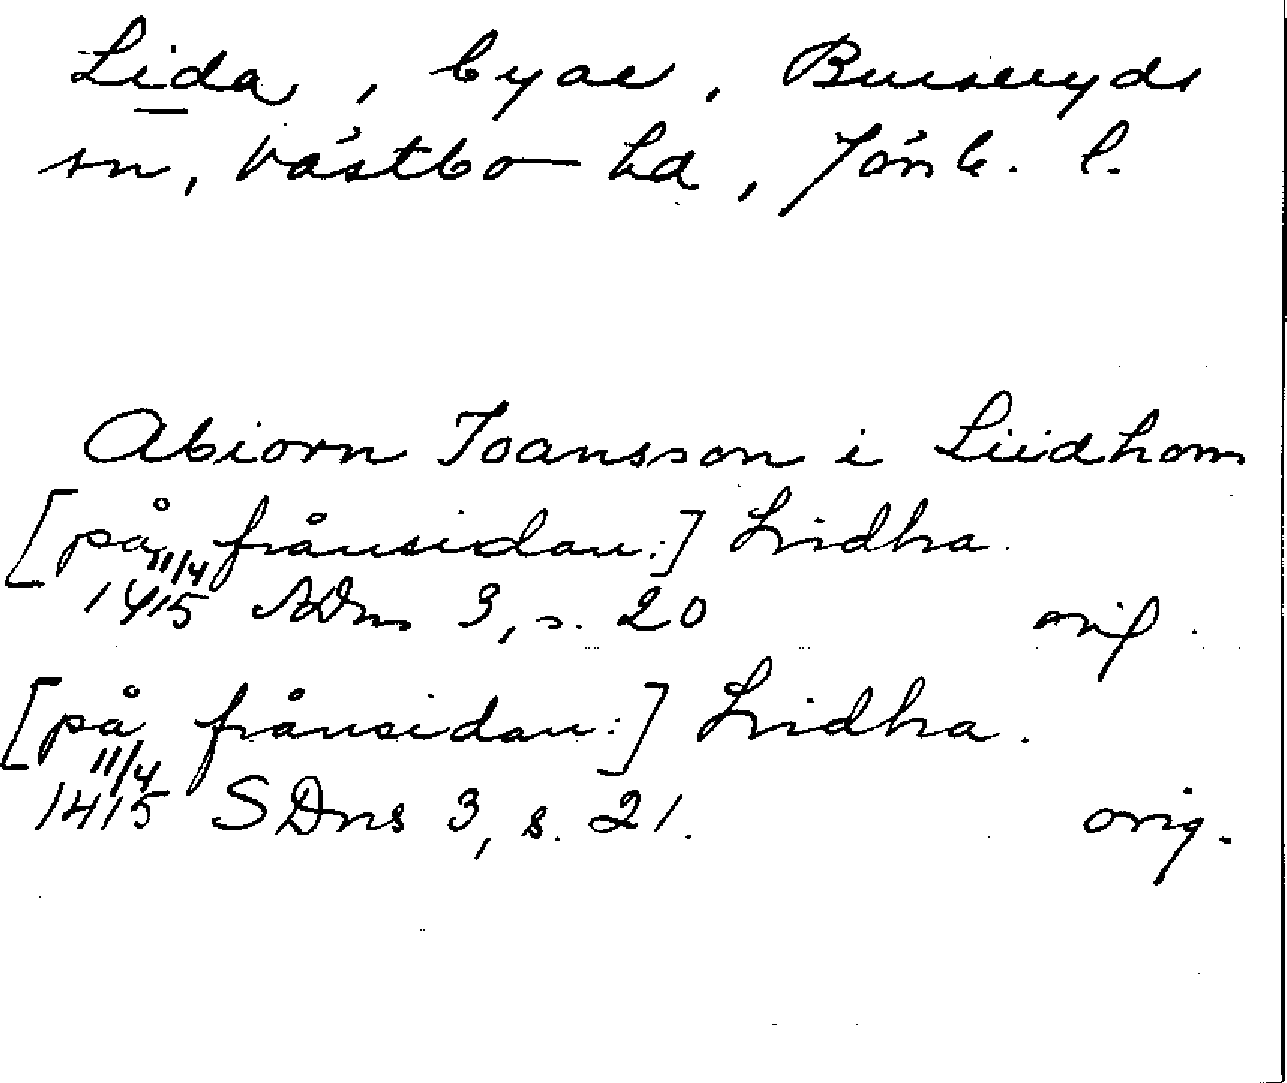 Lida, byar, Burseryds
sn, Västbo hd, Jönk. l.
Abiorn Joansson i Liidhom
[på frånsidan:] Liidha.
11/4 1415 SDns 3, s. 20 orig.
[på frånsidan:] Liidha.
11/4 1415 SDns 3, s. 21. orig.